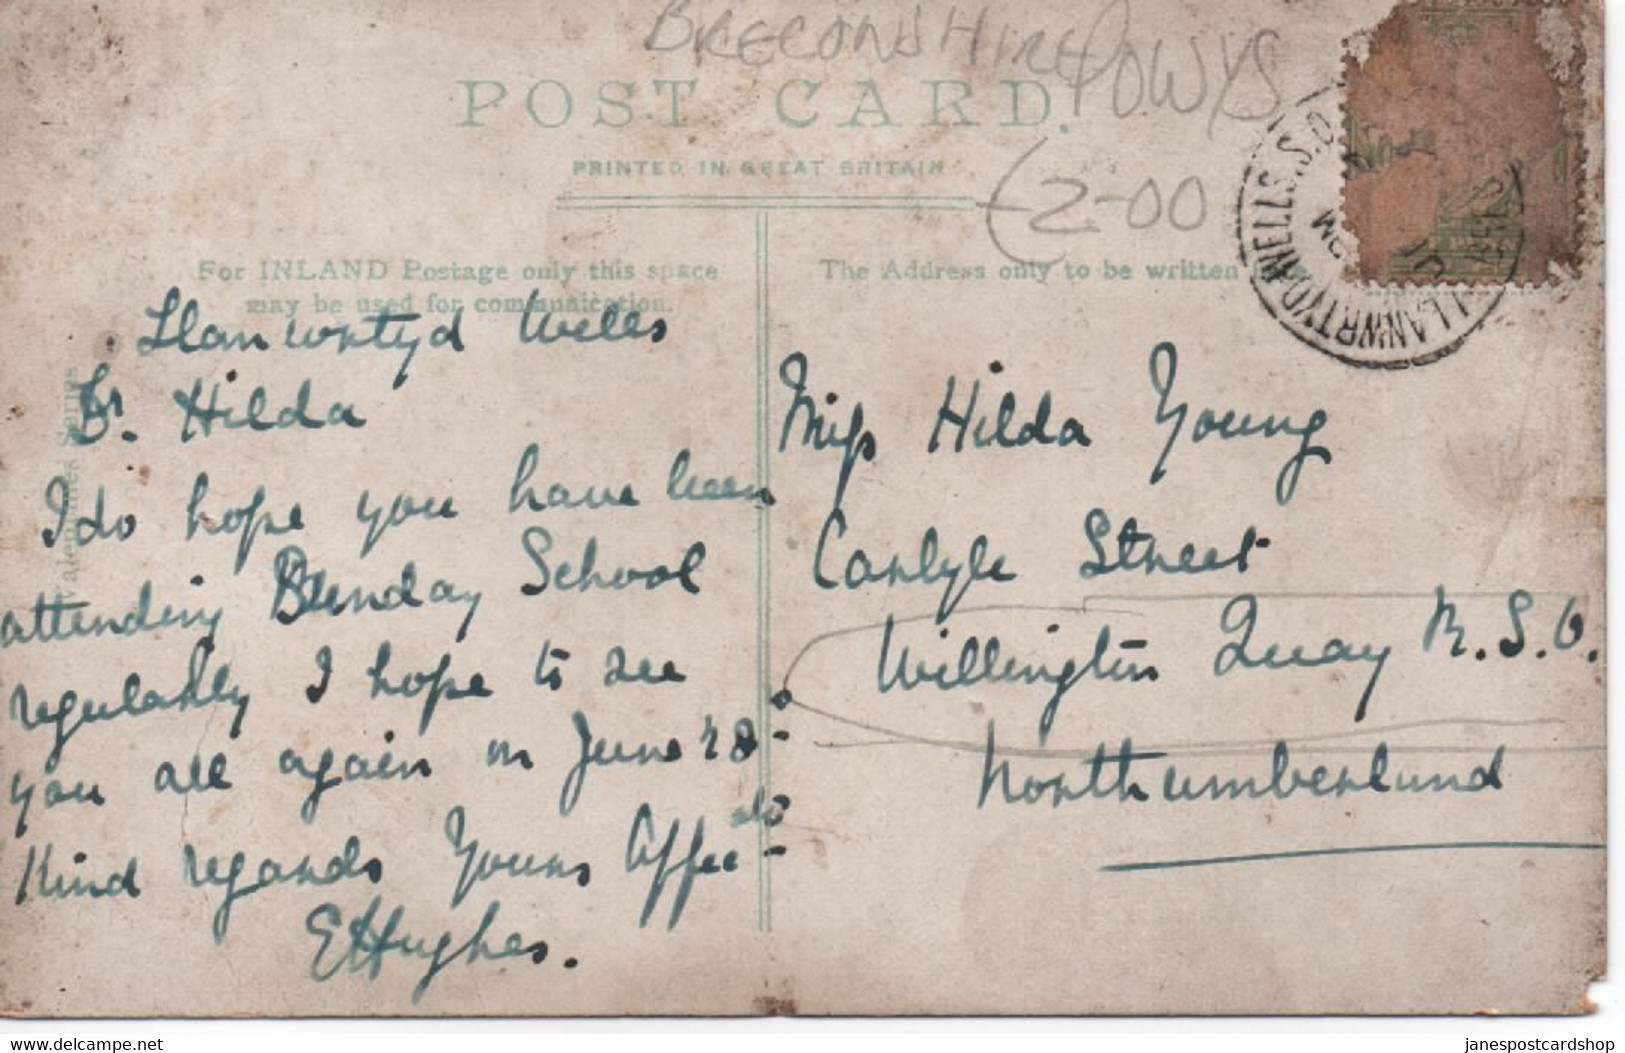 BRECONSHIRE POWYS
POST CARD.
PRINTED IN GREAT BRITAIN
2-00
For INLAND Postage only this space
may be used for communication.
The Address only to be written
LLANWRTYD WELLS.S.O
Valentines Series
Llanwrtyd Wells
Dr. Hilda
I do hope you have been
attending Sunday School
regularly I hope to see
you all again on June
Kind regards Yours Affec
EHughes.
Miss Hilda Young
Carlyle Street
Willington Quay R.S.O.
Northumberland
www.delcampe.net
janespostcardshop